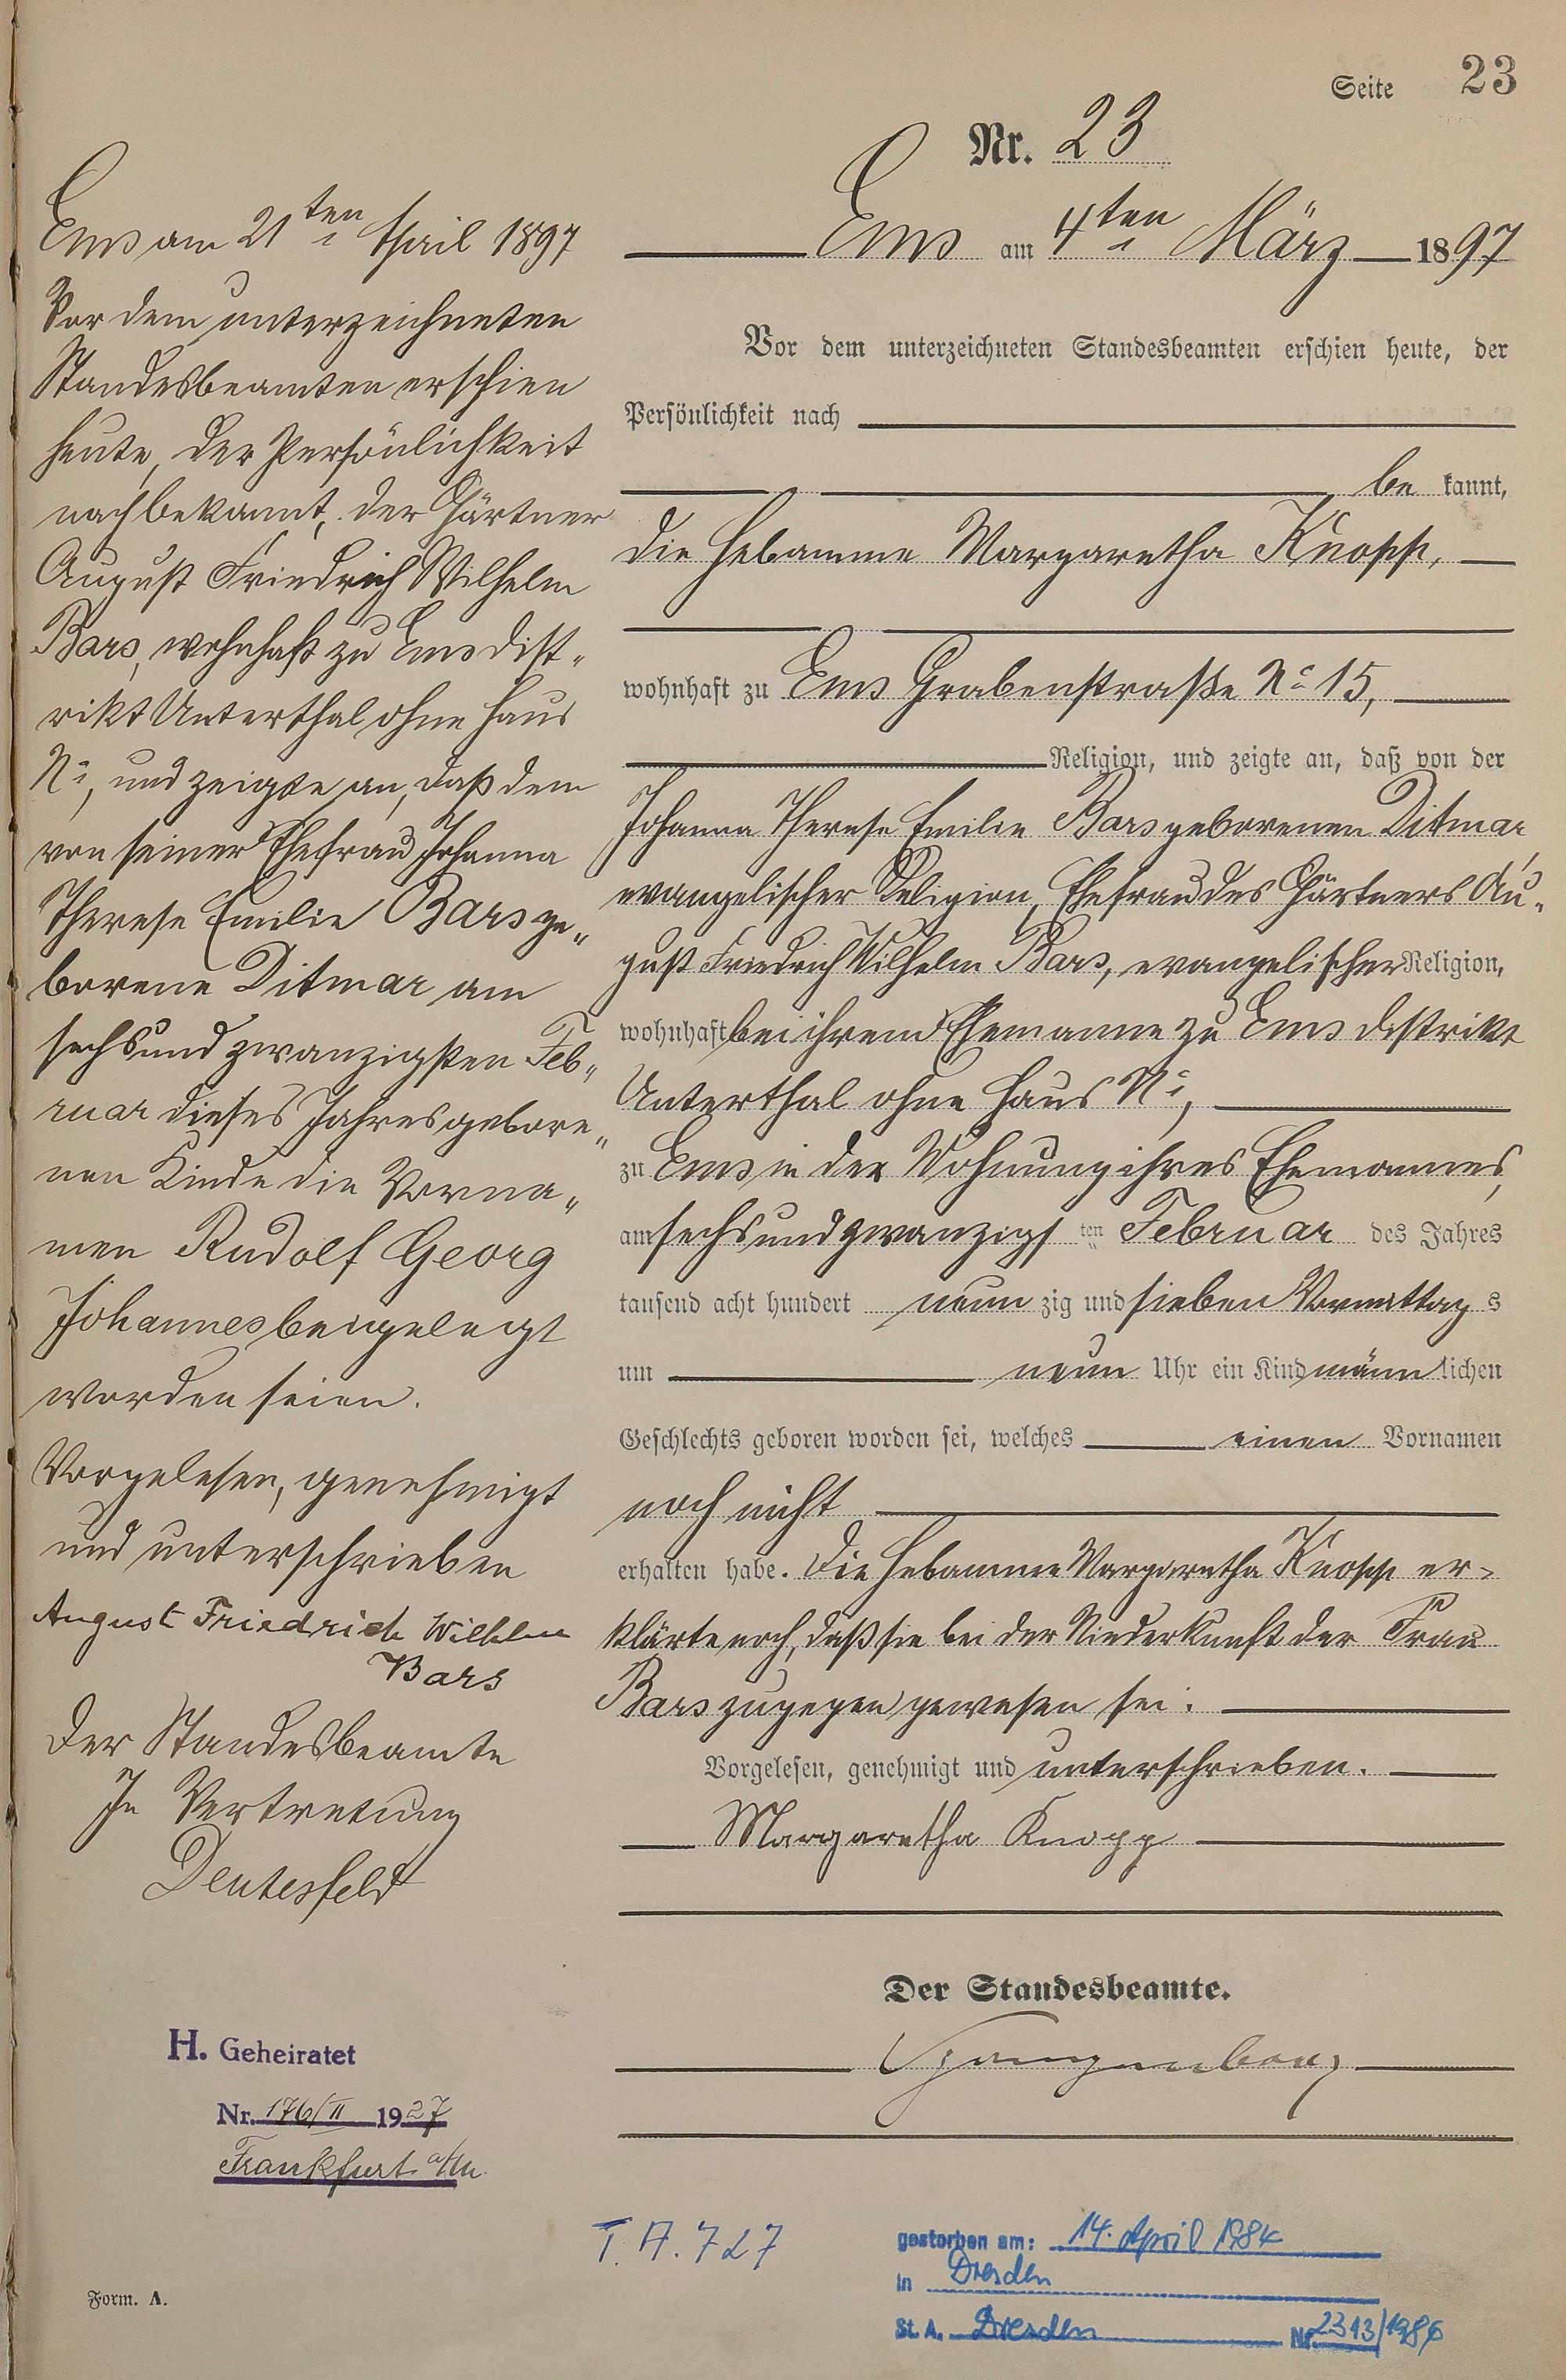 Seite 23
Nr. 23
Ems am 4ten März 1897
Vor dem unterzeichneten Standesbeamten erschien heute, der
Persönlichkeit nach
be kannt,
die Hebamme Margaretha Knopp,
wohnhaft zu Ems Grabenstraße No 15,
Religion, und zeigte an, daß von der
Johanna Therese Emilie Bars geborenen Ditmar,
evangelischer Religion, Ehefrau des Gärtners Au„
gust Friedrich Wilhelm Bars, evangelischer Religion,
wohnhaft bei ihrem Ehemanne zu Ems Distrikt
Unterthal ohne Haus No,
zu Ems in der Wohnung ihres Ehemannes,
am sechsundzwanzigs ten Februar des Jahres
tausend acht hundert neun zig und sieben Vormittag s
um neun Uhr ein Kind männ lichen
Geschlechts geboren worden sei, welches einen Vornamen
noch nicht
erhalten habe. Die Hebamme Margaretha Knopp er-
klärte noch, daß sie bei der Niederkunft der Frau
Bars zugegen gewesen sei.
Vorgelesen, genehmigt und unterschrieben.
Margaretha Knopp
Der Standesbeamte.
Ems am 21ten April 1897
Vor dem unterzeichneten
Standesbeamten erschien
heute, der Persönlichkeit
nach bekannt, der Gärtner
August Friedrich Wilhelm
Bars, wohnhaft zu Ems Dist„
rikt Unterthal ohne Haus
No, und zeigte an, daß dem
von seiner Ehefrau Johanna
Therese Emilie Bars ge„
borene Ditmar am
sechsundzwanzigsten Feb„
ruar dieses Jahres gebore„
nen Kinde die Vorna„
men Rudolf Georg
Johannes beigelegt
worden seien.
Vorgelesen, genehmigt
und unterschrieben
August Friedrich Wilhelm
Bars
Der Standesbeamte
In Vertretung
Deutesfeld
H. Geheiratet
Nr. 176/II 1927
Frankfurt a/M.
T. A. 727
gestorben am: 14. April 1984
in Dresden
St. A. Dresden Nr. 2313/1986
Form. A.